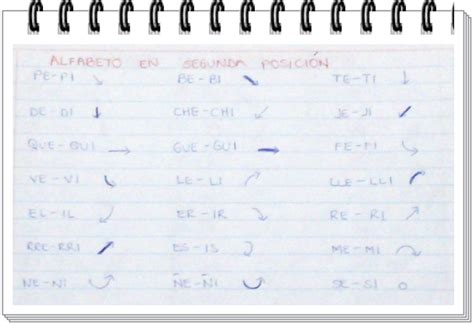 ALFABETO EN SEGUNDA POSICIÓN
PE-PI BE-BI TE-TI
DE-DI CHE-CHI JE-JI
QUE-QUI GUE-GUI FE-FI
VE-VI LE-LI LLE-LLI
EL-IL ER-IR RE-RI
RRE-RRI ES-IS ME-MI
NE-NI ÑE-ÑI SE-SI